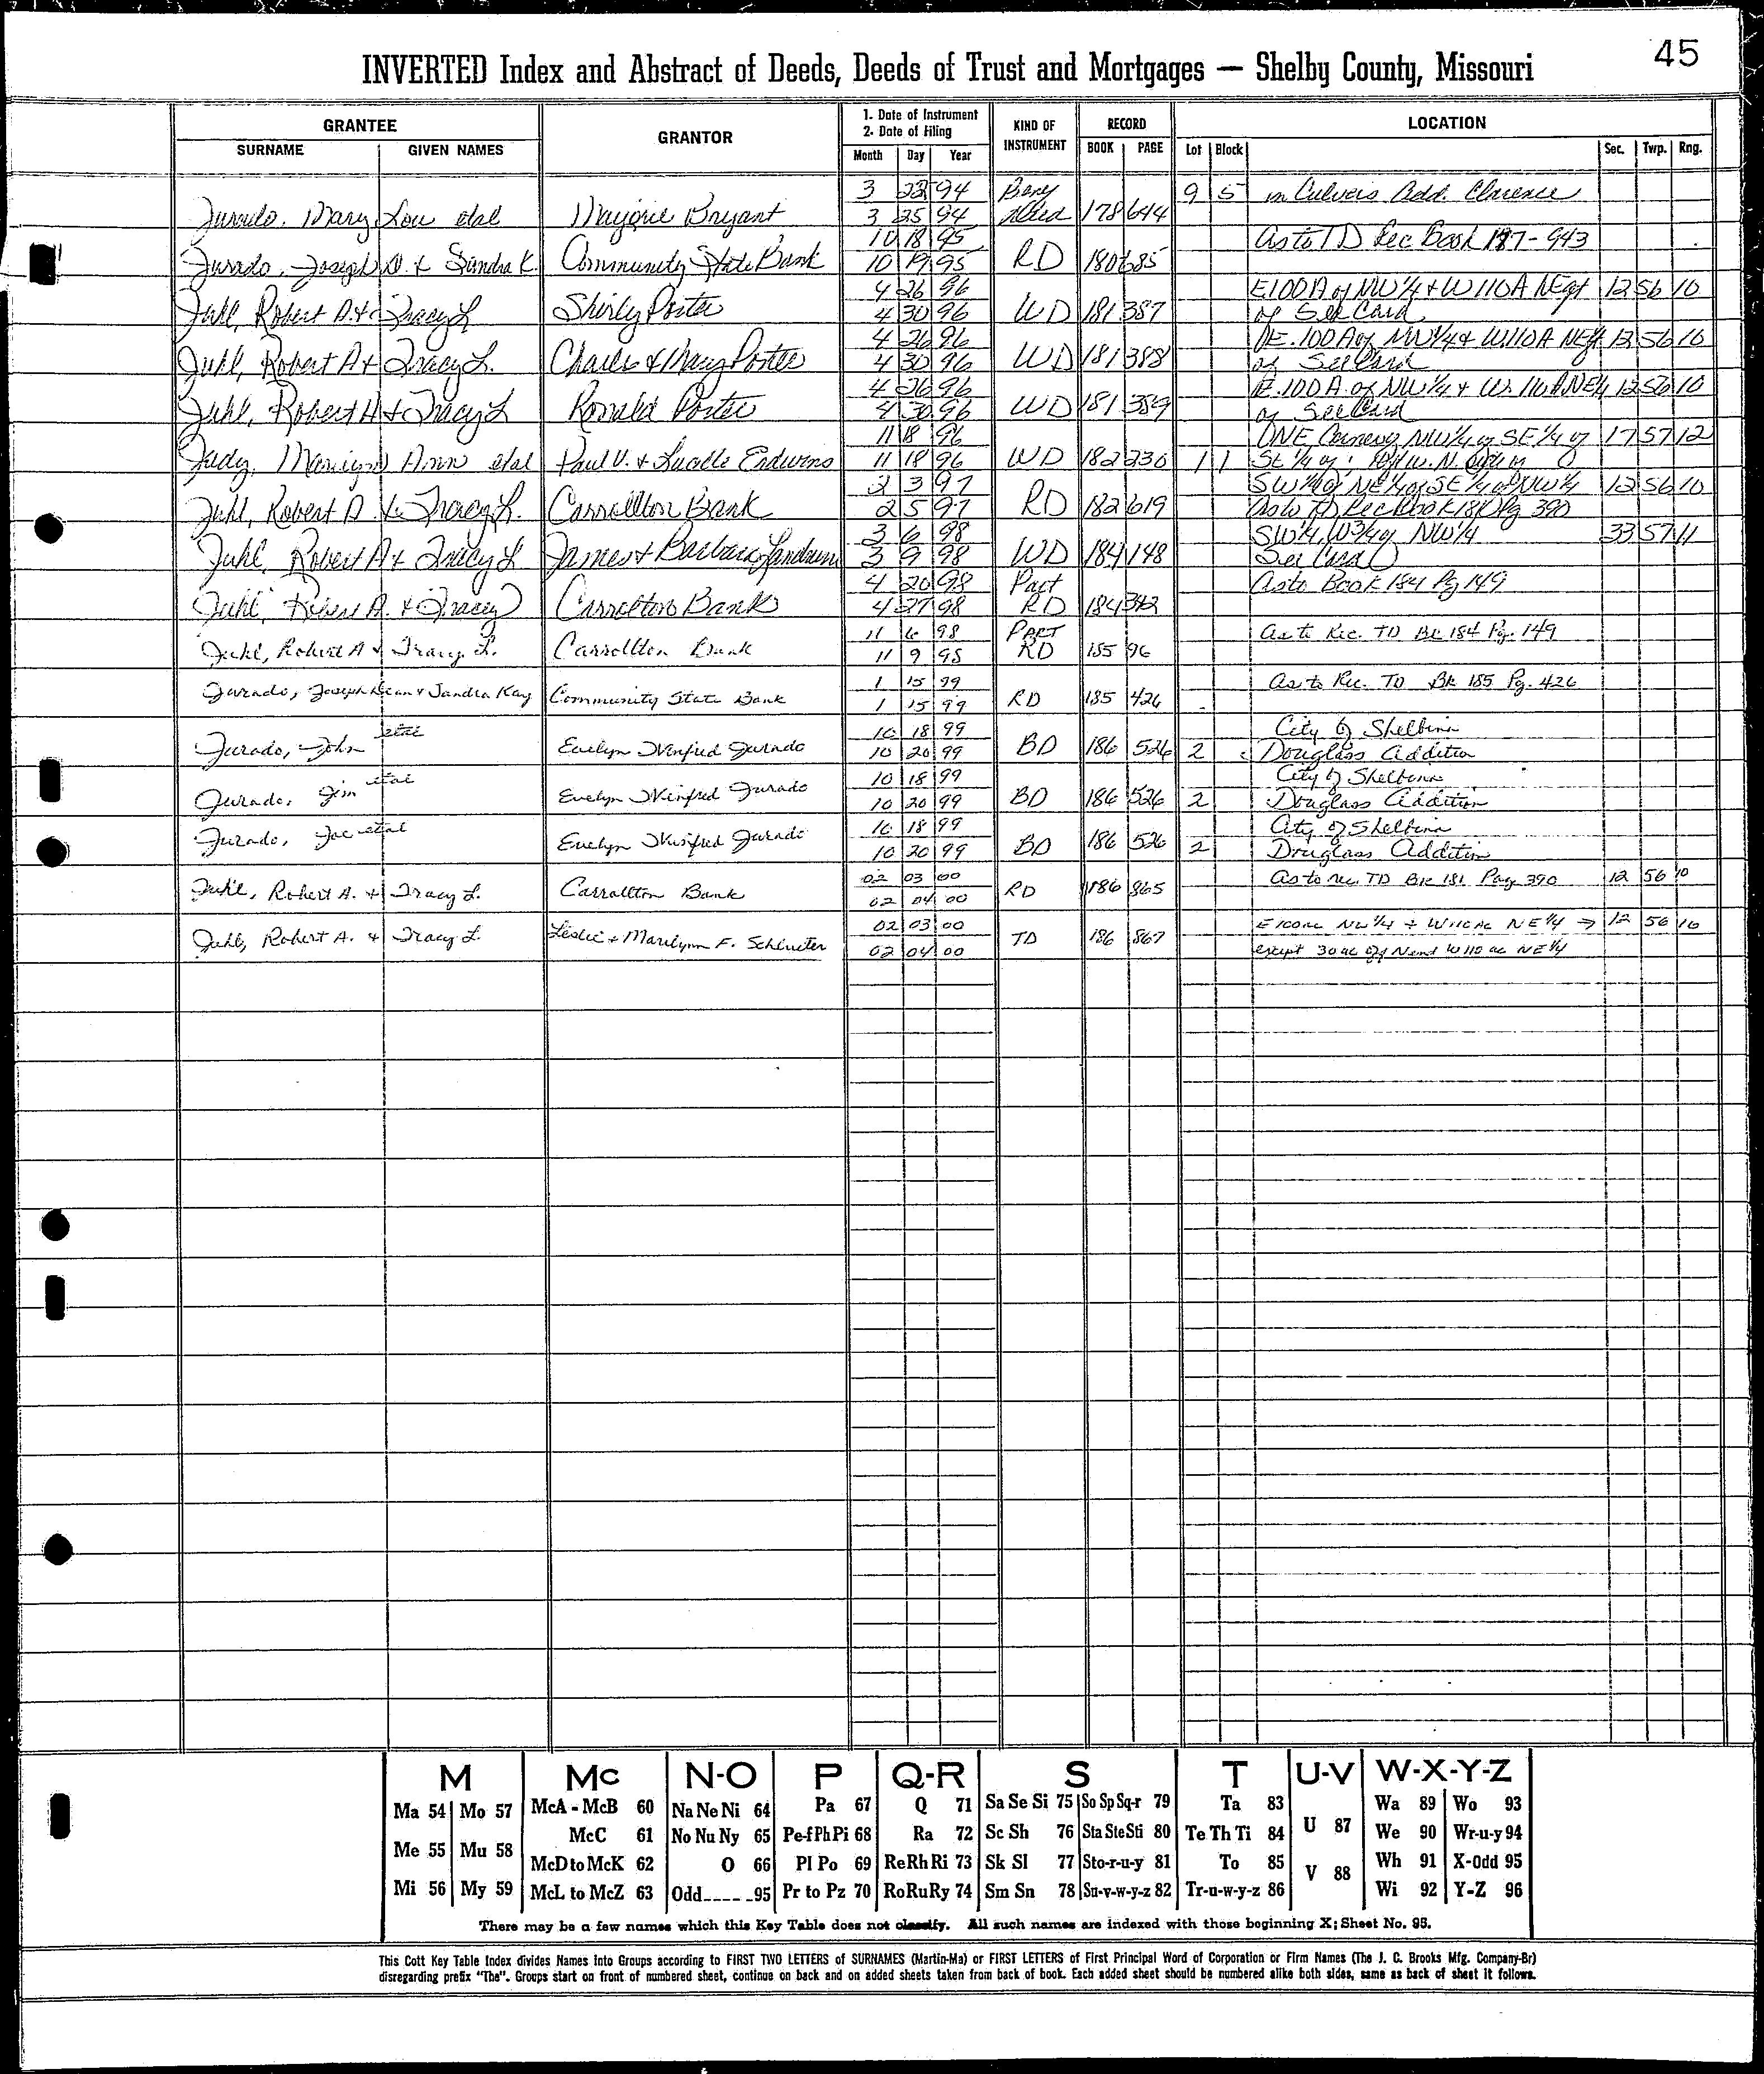 45
INVERTED Index and Abstract of Deeds, Deeds of Trust and Mortgages — Shelby County, Missouri
GRANTEE GRANTOR 1. Date of Instrument 2. Date of Filing KIND OF INSTRUMENT RECORD LOCATION
SURNAME GIVEN NAMES Month Day Year BOOK PAGE Lot Block Sec. Twp. Rng.
3 23 94 Beny 9 5 in Culvers Add. Clarence
Jurado, Mary Lou etal Marjorie Bryant 3 25 94 Deed 178 644
10 18 95 As to TD Rec Book 177-943
Jurado, Joseph D. & Sandra K. Community State Bank 10 19 95 RD 180 685
4 26 96 E100A of NW 1/4 & W110A NE 1/4 12 56 10
Juhl, Robert A. & Tracy L Shirly Porter 4 30 96 WD 181 387 of See Card
4 26 96 E.100A of NW 1/4 & W110A NE 1/4 12 56 10
Juhl, Robert A & Tracy L. Charles & Mary Porter 4 30 96 WD 181 388 of See Card
4 26 96 E.100A. of NW 1/4 & W. 110A NE 1/4 12 56 10
Juhl, Robert A & Tracy L Ronald Porter 4 30 96 WD 181 389 of See Card
11 18 96 NE Corner NW 1/4 of SE 1/4 of 17 57 12
Judy, Marilyn Ann etal Paul V. & Lucille 11 18 96 WD 182 230 1 1 SE 1/4 of
2 3 97 SW 1/4 of NE 1/4 of SE 1/4 of NW 1/4 12 56 10
Juhl, Robert A. & Tracy L. Carrollton Bank 2 5 97 RD 182 619 As to TD Rec Book 181 Pg 390
3 6 98 SW 1/4, W 3/4 of NW 1/4 33 57 11
Juhl, Robert A & Tracy L James & Barbara Landrum 3 9 98 WD 184 148 See Card
4 20 98 Part As to Book 184 Pg 149
Juhl, Robert A. & Tracy Carrollton Bank 4 27 98 RD 184 342
11 6 98 Part As to Rec. TD Bk 184 Pg. 149
Juhl, Robert A & Tracy L. Carrollton Bank 11 9 98 RD 185 96
1 15 99 As to Rec. TD Bk 185 Pg. 426
Jurado, Joseph Dean & Sandra Kay Community State Bank 1 15 99 RD 185 426
etal 10 18 99 City of Shelbina
Jurado, John Evelyn Winfred Jurado 10 20 99 BD 186 526 2 Douglass Addition
etal 10 18 99 City of Shelbina
Jurado, Jim Evelyn Winfred Jurado 10 20 99 BD 186 526 2 Douglass Addition
etal 10 18 99 City of Shelbina
Jurado, Joe Evelyn Winfred Jurado 10 20 99 BD 186 526 2 Douglass Addition
02 03 00 As to rec. TD Bk 181 Page 390 12 56 10
Juhl, Robert A. & Tracy L. Carrollton Bank 02 04 00 RD 186 865
02 03 00 E100ac NW 1/4 & W110ac NE 1/4 → 12 56 10
Juhl, Robert A. & Tracy L. Leslie & Marilynn F. Schlueter 02 04 00 TD 186 867 except 30 ac off N end W 110 ac NE 1/4
M Mc N-O P Q-R S T U-V W-X-Y-Z
Ma 54 Mo 57 McA - McB 60 Na Ne Ni 64 Pa 67 Q 71 Sa Se Si 75 So Sp Sq-r 79 Ta 83 U 87 Wa 89 Wo 93
Me 55 Mu 58 McC 61 No Nu Ny 65 Pe-f Ph Pi 68 Ra 72 Sc Sh 76 Sta Ste Sti 80 Te Th Ti 84 We 90 Wr-u-y 94
McD to McK 62 O 66 Pl Po 69 Re Rh Ri 73 Sk Sl 77 Sto-r-u-y 81 To 85 V 88 Wh 91 X-Odd 95
Mi 56 My 59 McL to McZ 63 Odd 95 Pr to Pz 70 Ro Ru Ry 74 Sm Sn 78 Su-v-w-y-z 82 Tr-u-w-y-z 86 Wi 92 Y-Z 96
There may be a few names which this Key Table does not classify. All such names are indexed with those beginning X; Sheet No. 95.
This Cott Key Table Index divides Names into Groups according to FIRST TWO LETTERS of SURNAMES (Martin-Ma) or FIRST LETTERS of First Principal Word of Corporation or Firm Names (The J. C. Brooks Mfg. Company-Br)
disregarding prefix "The". Groups start on front of numbered sheet, continue on back and on added sheets taken from back of book. Each added sheet should be numbered alike both sides, same as back of sheet it follows.